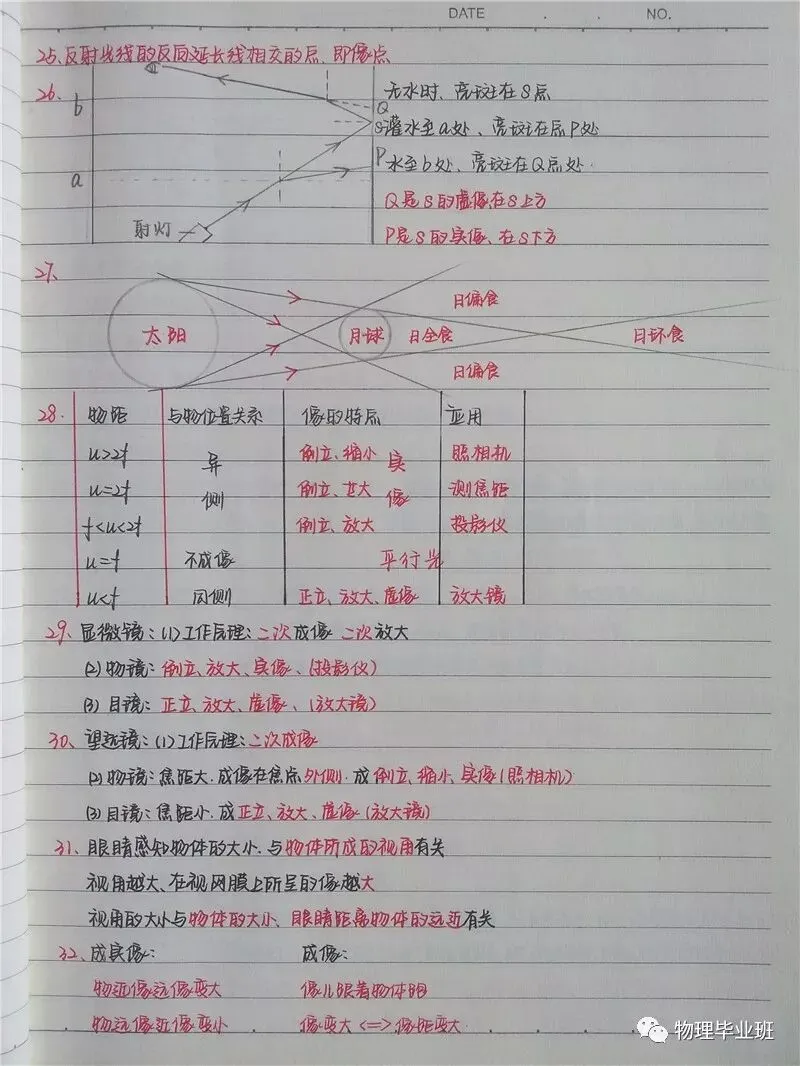 DATE . . NO.
25、反射光线的反向延长线相交的点,即像点
26、
b
a
射灯
Q
S
P
无水时、亮斑在S点
灌水至a处、亮斑在点P处
水至b处、亮斑在Q点处.
Q是S的虚像,在S上方
P是S的实像、在S下方
27、
太阳 月球 日全食 日环食
日偏食
日偏食
28. 物距 与物位置关系 像的特点 应用
u>2f 异 倒立、缩小 实 照相机
u=2f 侧 倒立、等大 像 测焦距
f<u<2f 倒立、放大 投影仪
u=f 不成像 平行光
u<f 同侧 正立、放大、虚像 放大镜
29、显微镜:(1)工作原理:二次成像 二次放大
(2)物镜:倒立、放大、实像、(投影仪)
(3)目镜:正立、放大、虚像、(放大镜)
30、望远镜:(1)工作原理:二次成像
(2)物镜:焦距大.成像在焦点外侧.成倒立、缩小、实像(照相机)
(3)目镜:焦距小.成正立、放大、虚像(放大镜)
31、眼睛感知物体的大小.与物体所成的视角有关
视角越大、在视网膜上所呈的像越大
视角的大小与物体的大小、眼睛距离物体的远近有关
32、成实像: 成像:
物近像远像变大 像儿跟着物体跑
物远像近像变小 像变大<=>像距变大
物理毕业班